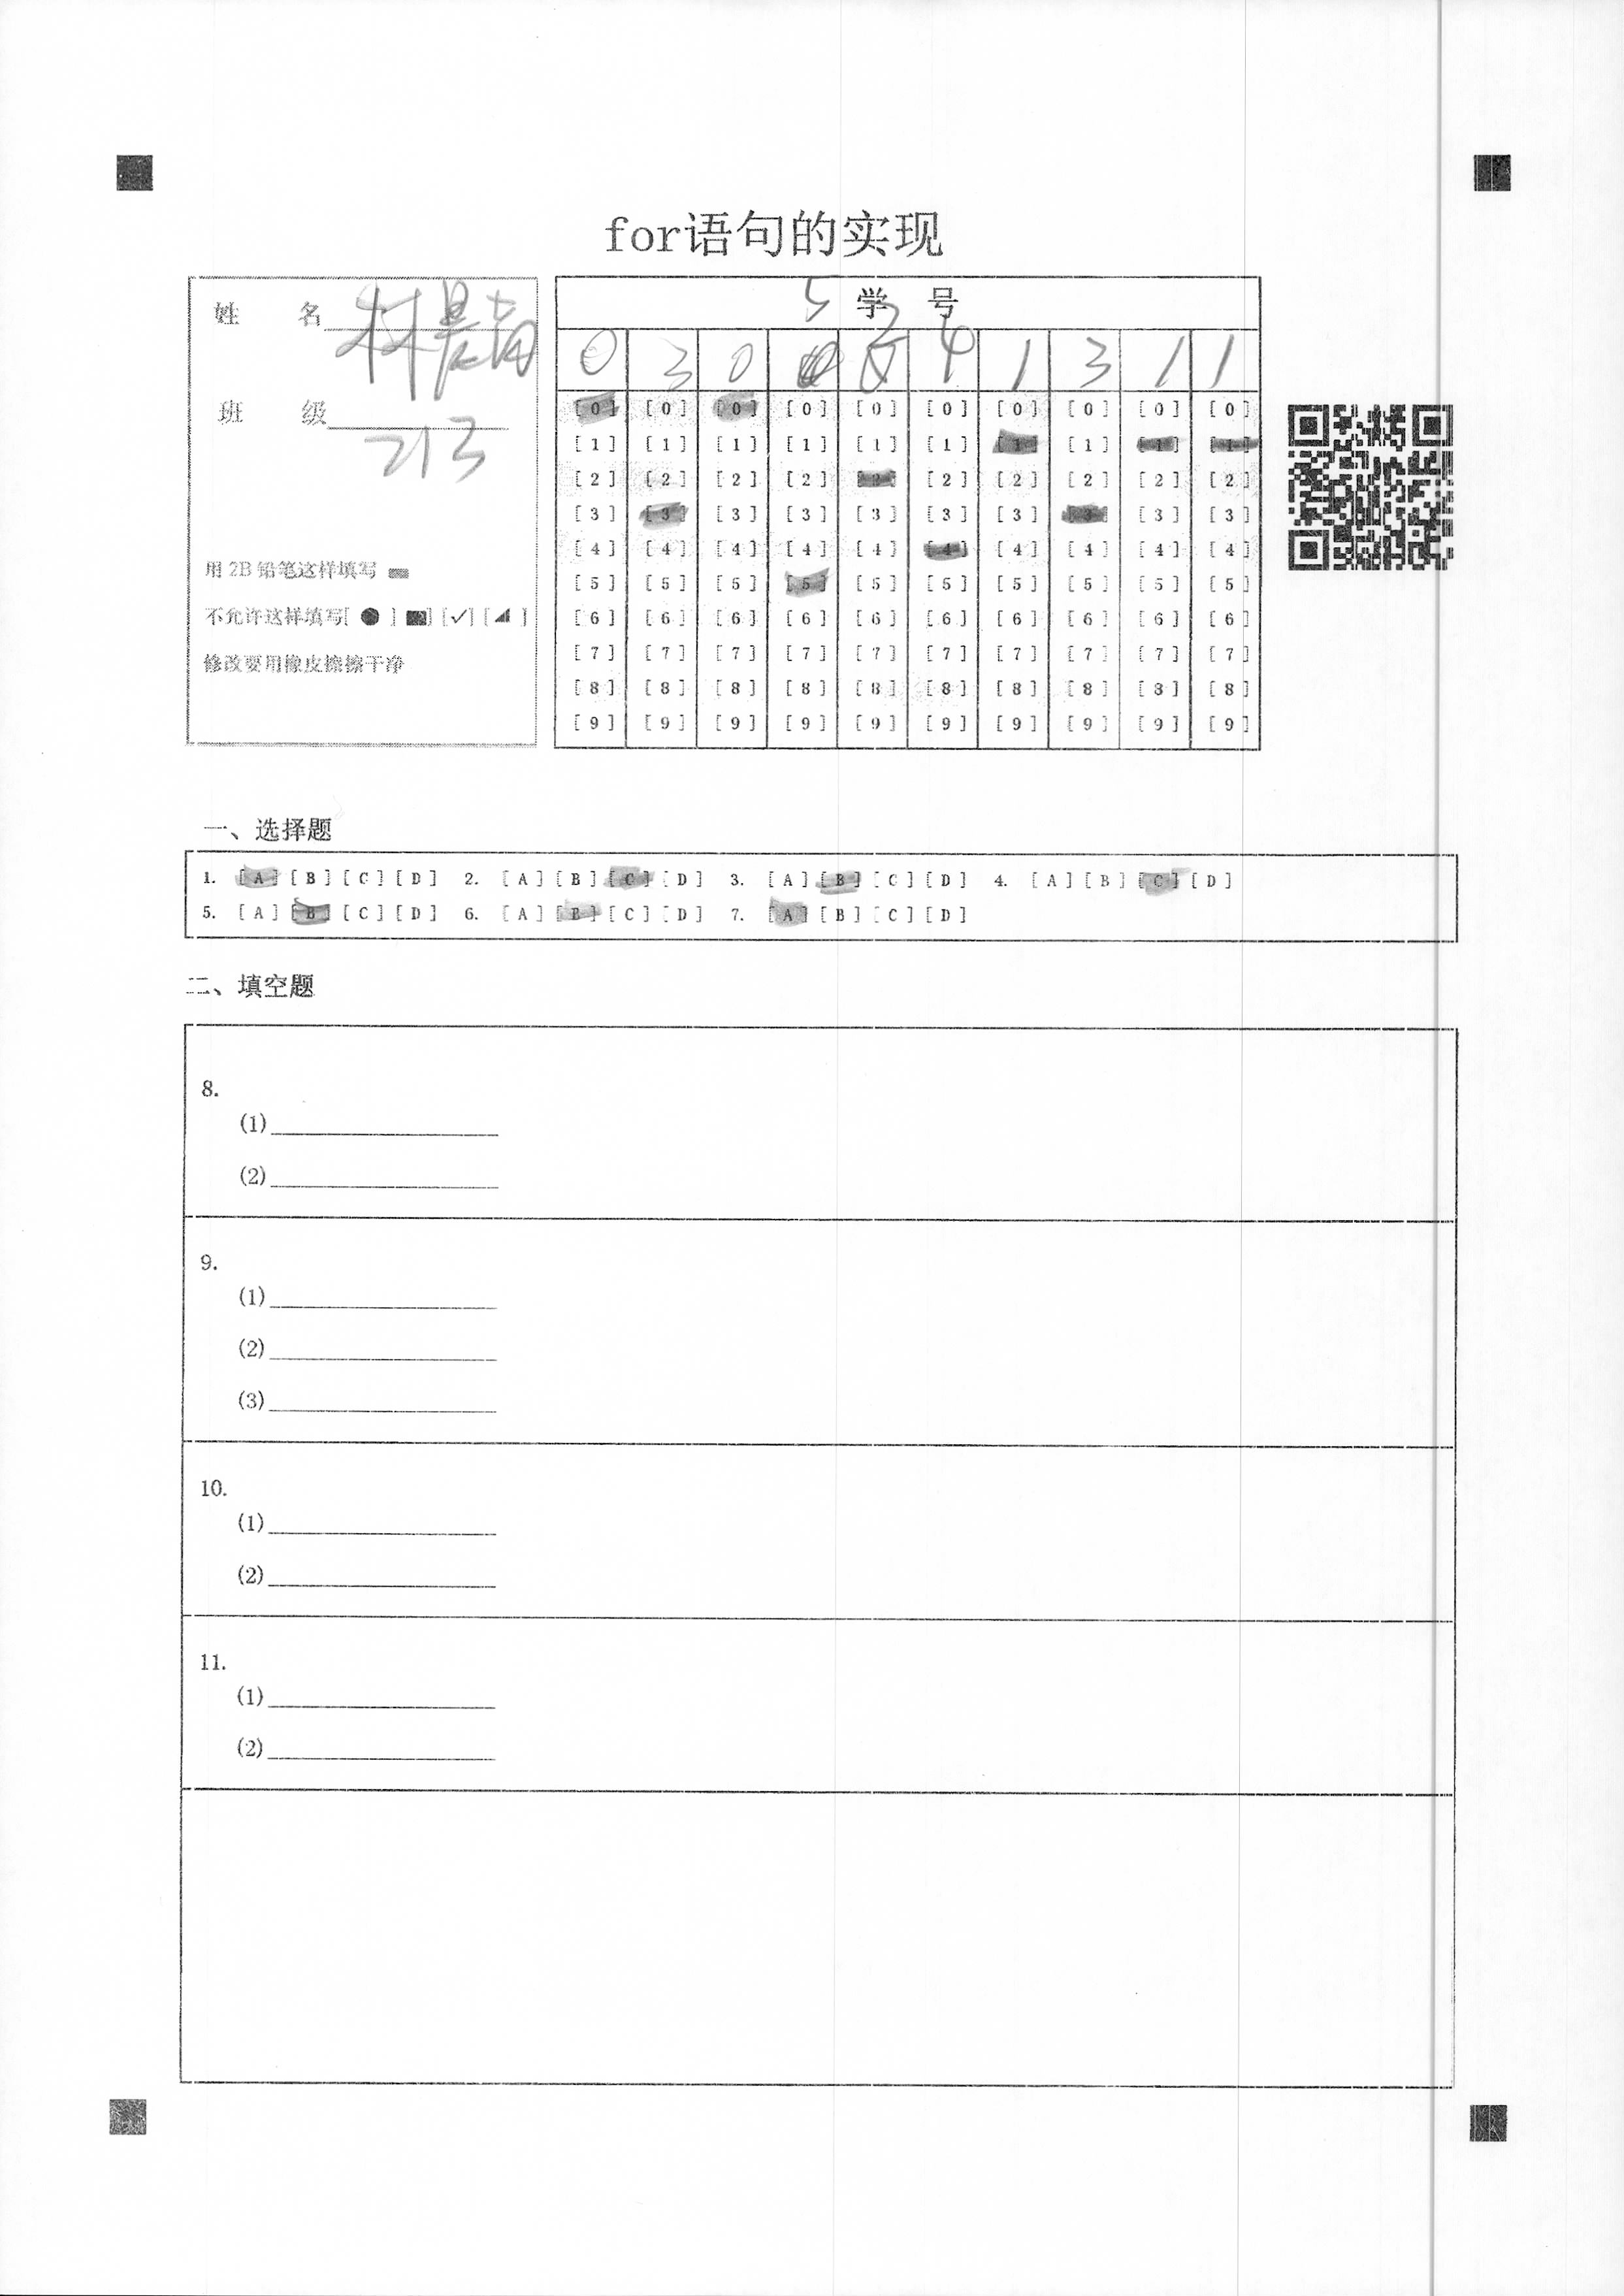 for语句的实现
姓 名 林晨
班 级 213
用 2B 铅笔这样填写
不允许这样填写[ ● ] [■] [✓] [◢ ]
修改要用橡皮擦擦干净
5 学 2 号
0 3 0 4 1 3 1 1
[0] [0] [0] [0] [0] [0] [0] [0] [0] [0]
[1] [1] [1] [1] [1] [1] [1] [1] [1] [1]
[2] [2] [2] [2] [2] [2] [2] [2] [2] [2]
[3] [3] [3] [3] [3] [3] [3] [3] [3] [3]
[4] [4] [4] [4] [4] [4] [4] [4] [4] [4]
[5] [5] [5] [5] [5] [5] [5] [5] [5] [5]
[6] [6] [6] [6] [6] [6] [6] [6] [6] [6]
[7] [7] [7] [7] [7] [7] [7] [7] [7] [7]
[8] [8] [8] [8] [8] [8] [8] [8] [8] [8]
[9] [9] [9] [9] [9] [9] [9] [9] [9] [9]
一、选择题
1. [A] [B] [C] [D] 2. [A] [B] [C] [D] 3. [A] [B] [C] [D] 4. [A] [B] [C] [D]
5. [A] [B] [C] [D] 6. [A] [B] [C] [D] 7. [A] [B] [C] [D]
二、填空题
8.
(1)
(2)
9.
(1)
(2)
(3)
10.
(1)
(2)
11.
(1)
(2)